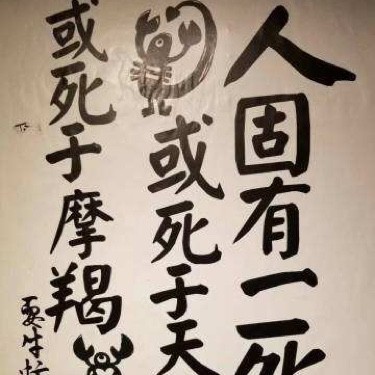 人固有一死
或死于天
或死于摩羯